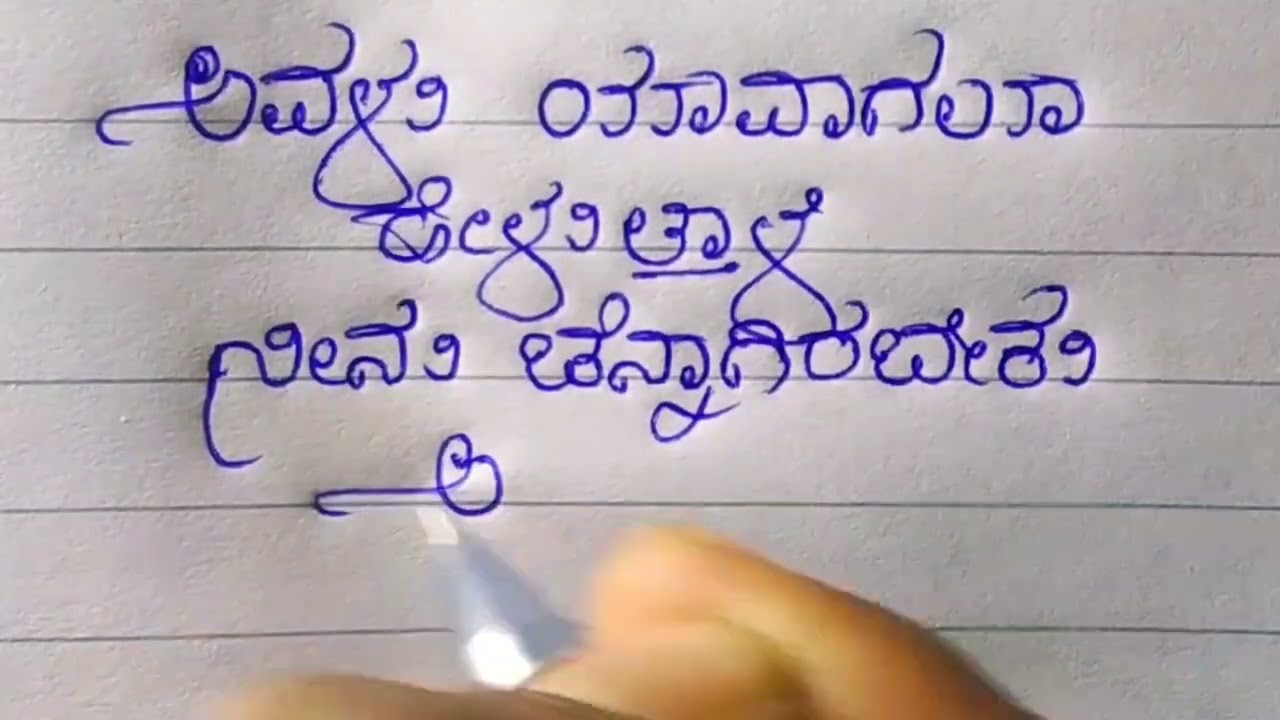 ಅವಳು ಯಾವಾಗಲೂ
ಕೇಳುತ್ತಾಳೆ
ನೀನು ಚೆನ್ನಾಗಿರಬೇಕು
ಅ